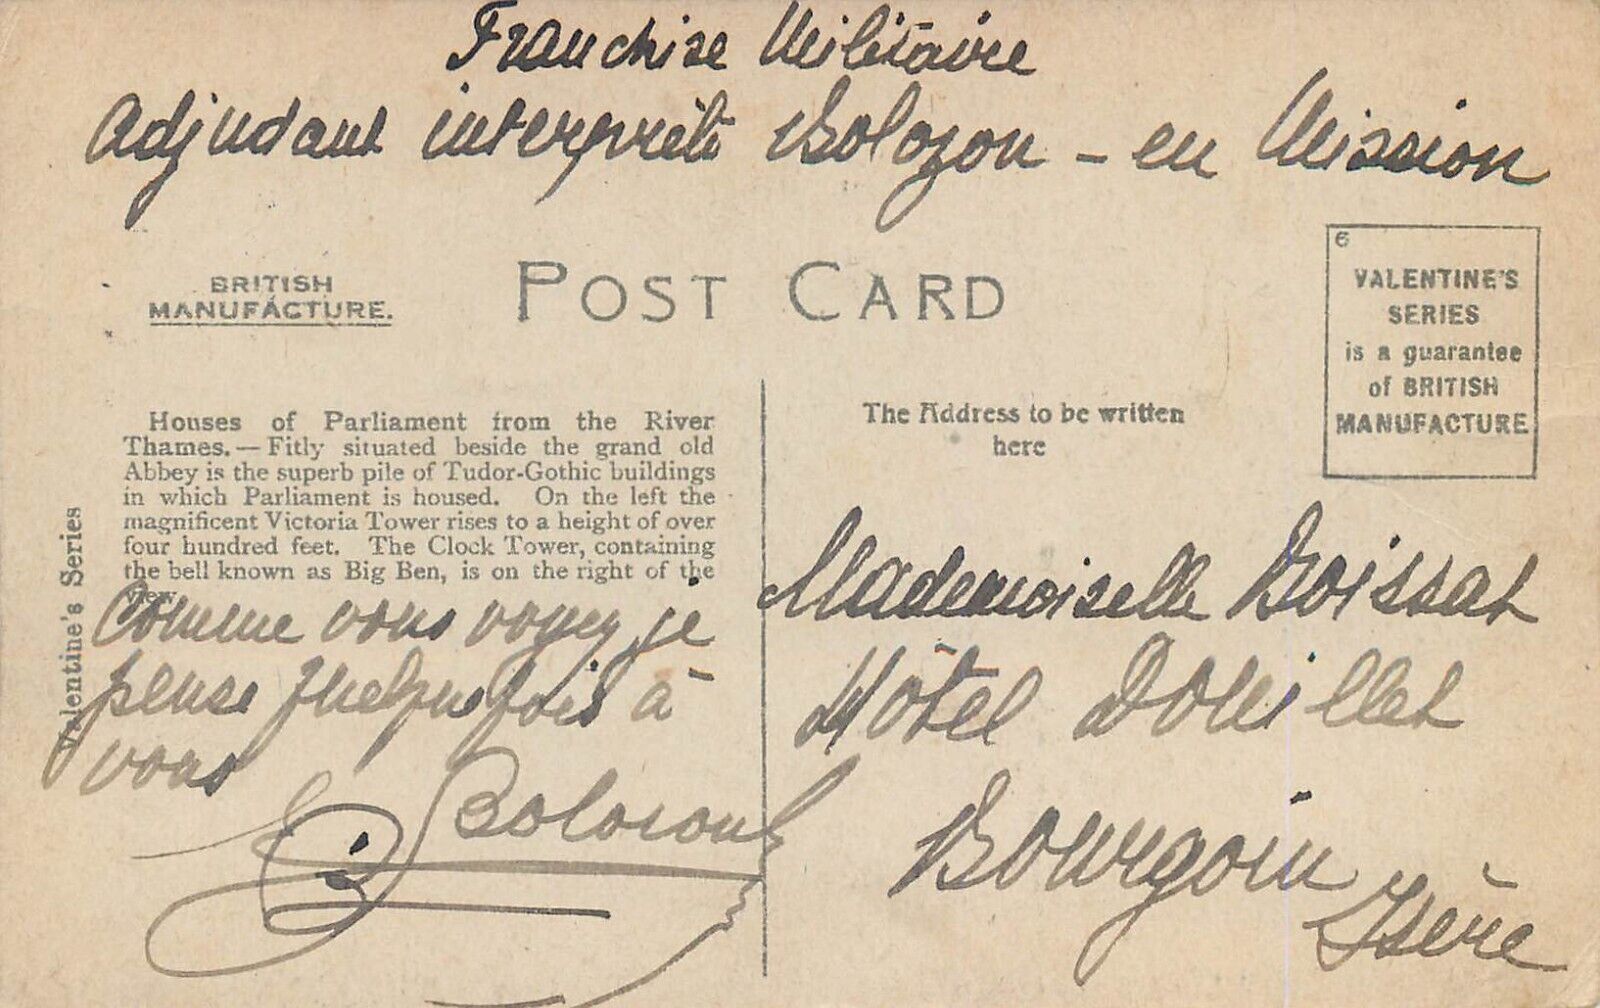 Franchise Militaire
Adjudant interprète Bolozon - en Mission
BRITISH
MANUFACTURE.
POST CARD
6
VALENTINE'S
SERIES
is a guarantee
of BRITISH
MANUFACTURE
Houses of Parliament from the River
Thames. — Fitly situated beside the grand old
Abbey is the superb pile of Tudor-Gothic buildings
in which Parliament is housed. On the left the
magnificent Victoria Tower rises to a height of over
four hundred feet. The Clock Tower, containing
the bell known as Big Ben, is on the right of the
view.
Valentine's Series
Comme vous voyez je
pense quelquefois à
vous
Bolozon
The Address to be written
here
Mademoiselle Boissat
Hôtel Douillet
Bourgoin
Isère